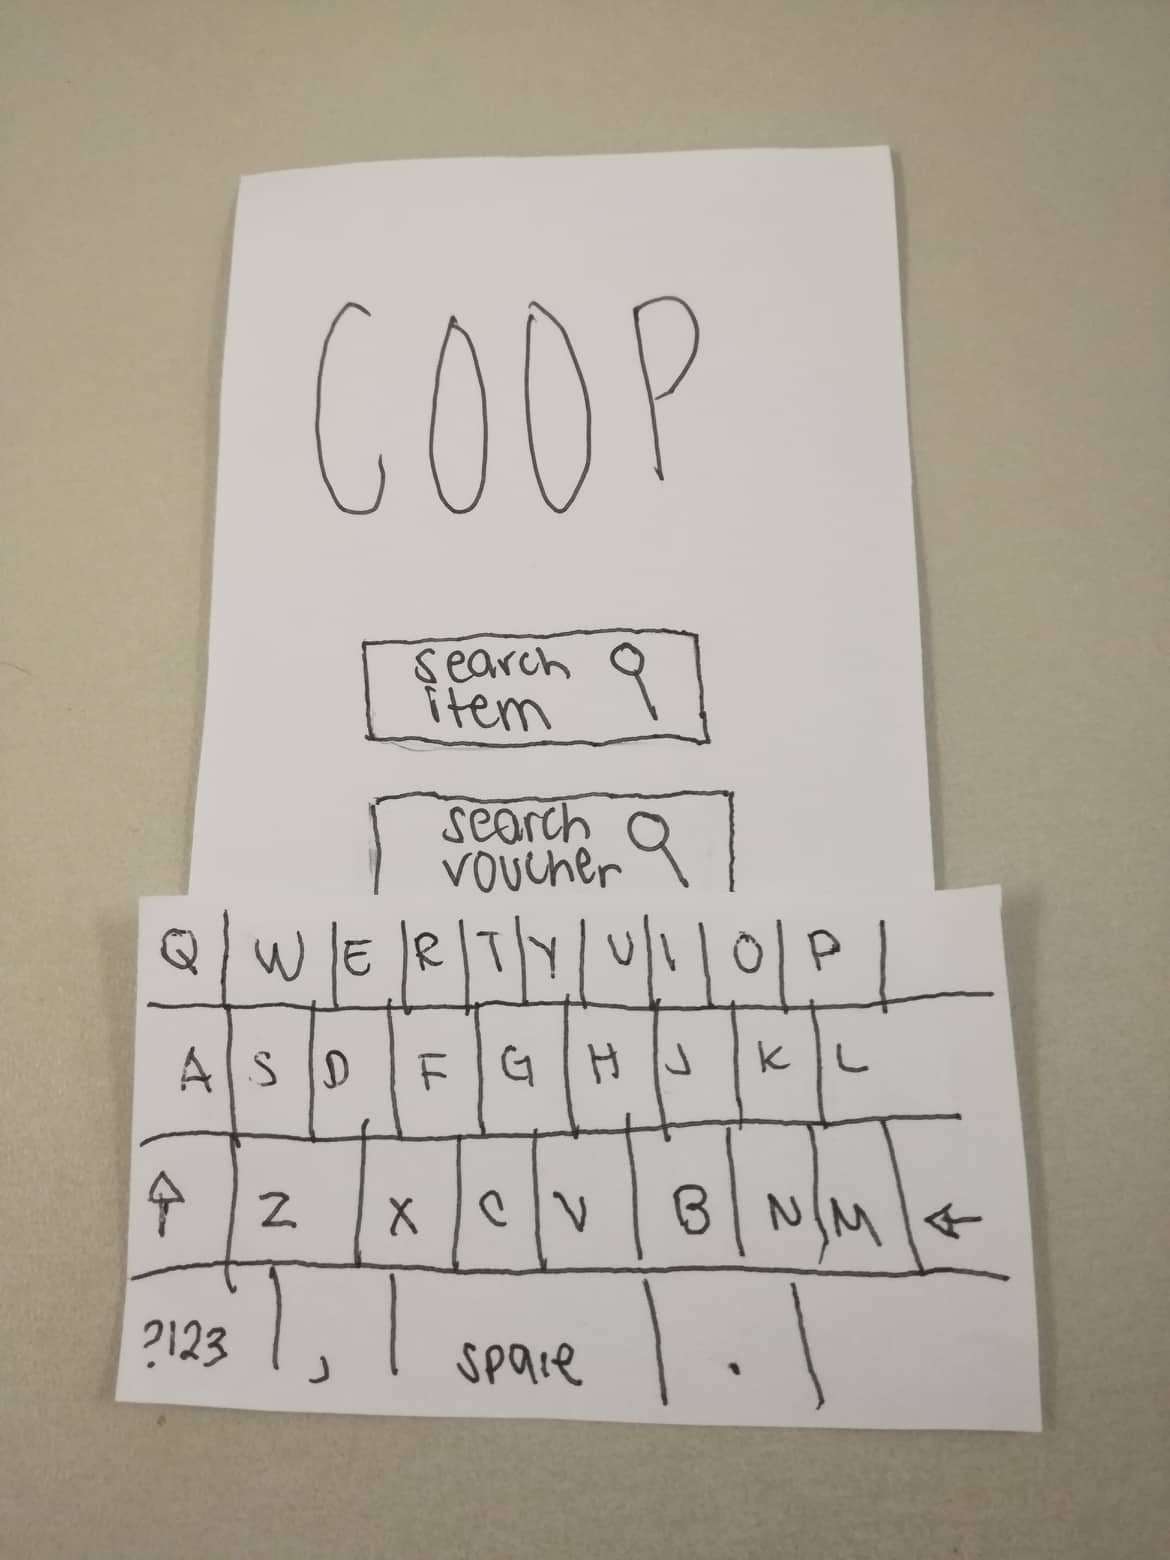 COOP
search
item
search
voucher
Q W E R T Y U I O P
A S D F G H J K L
Z X C V B N M
?123 , space .